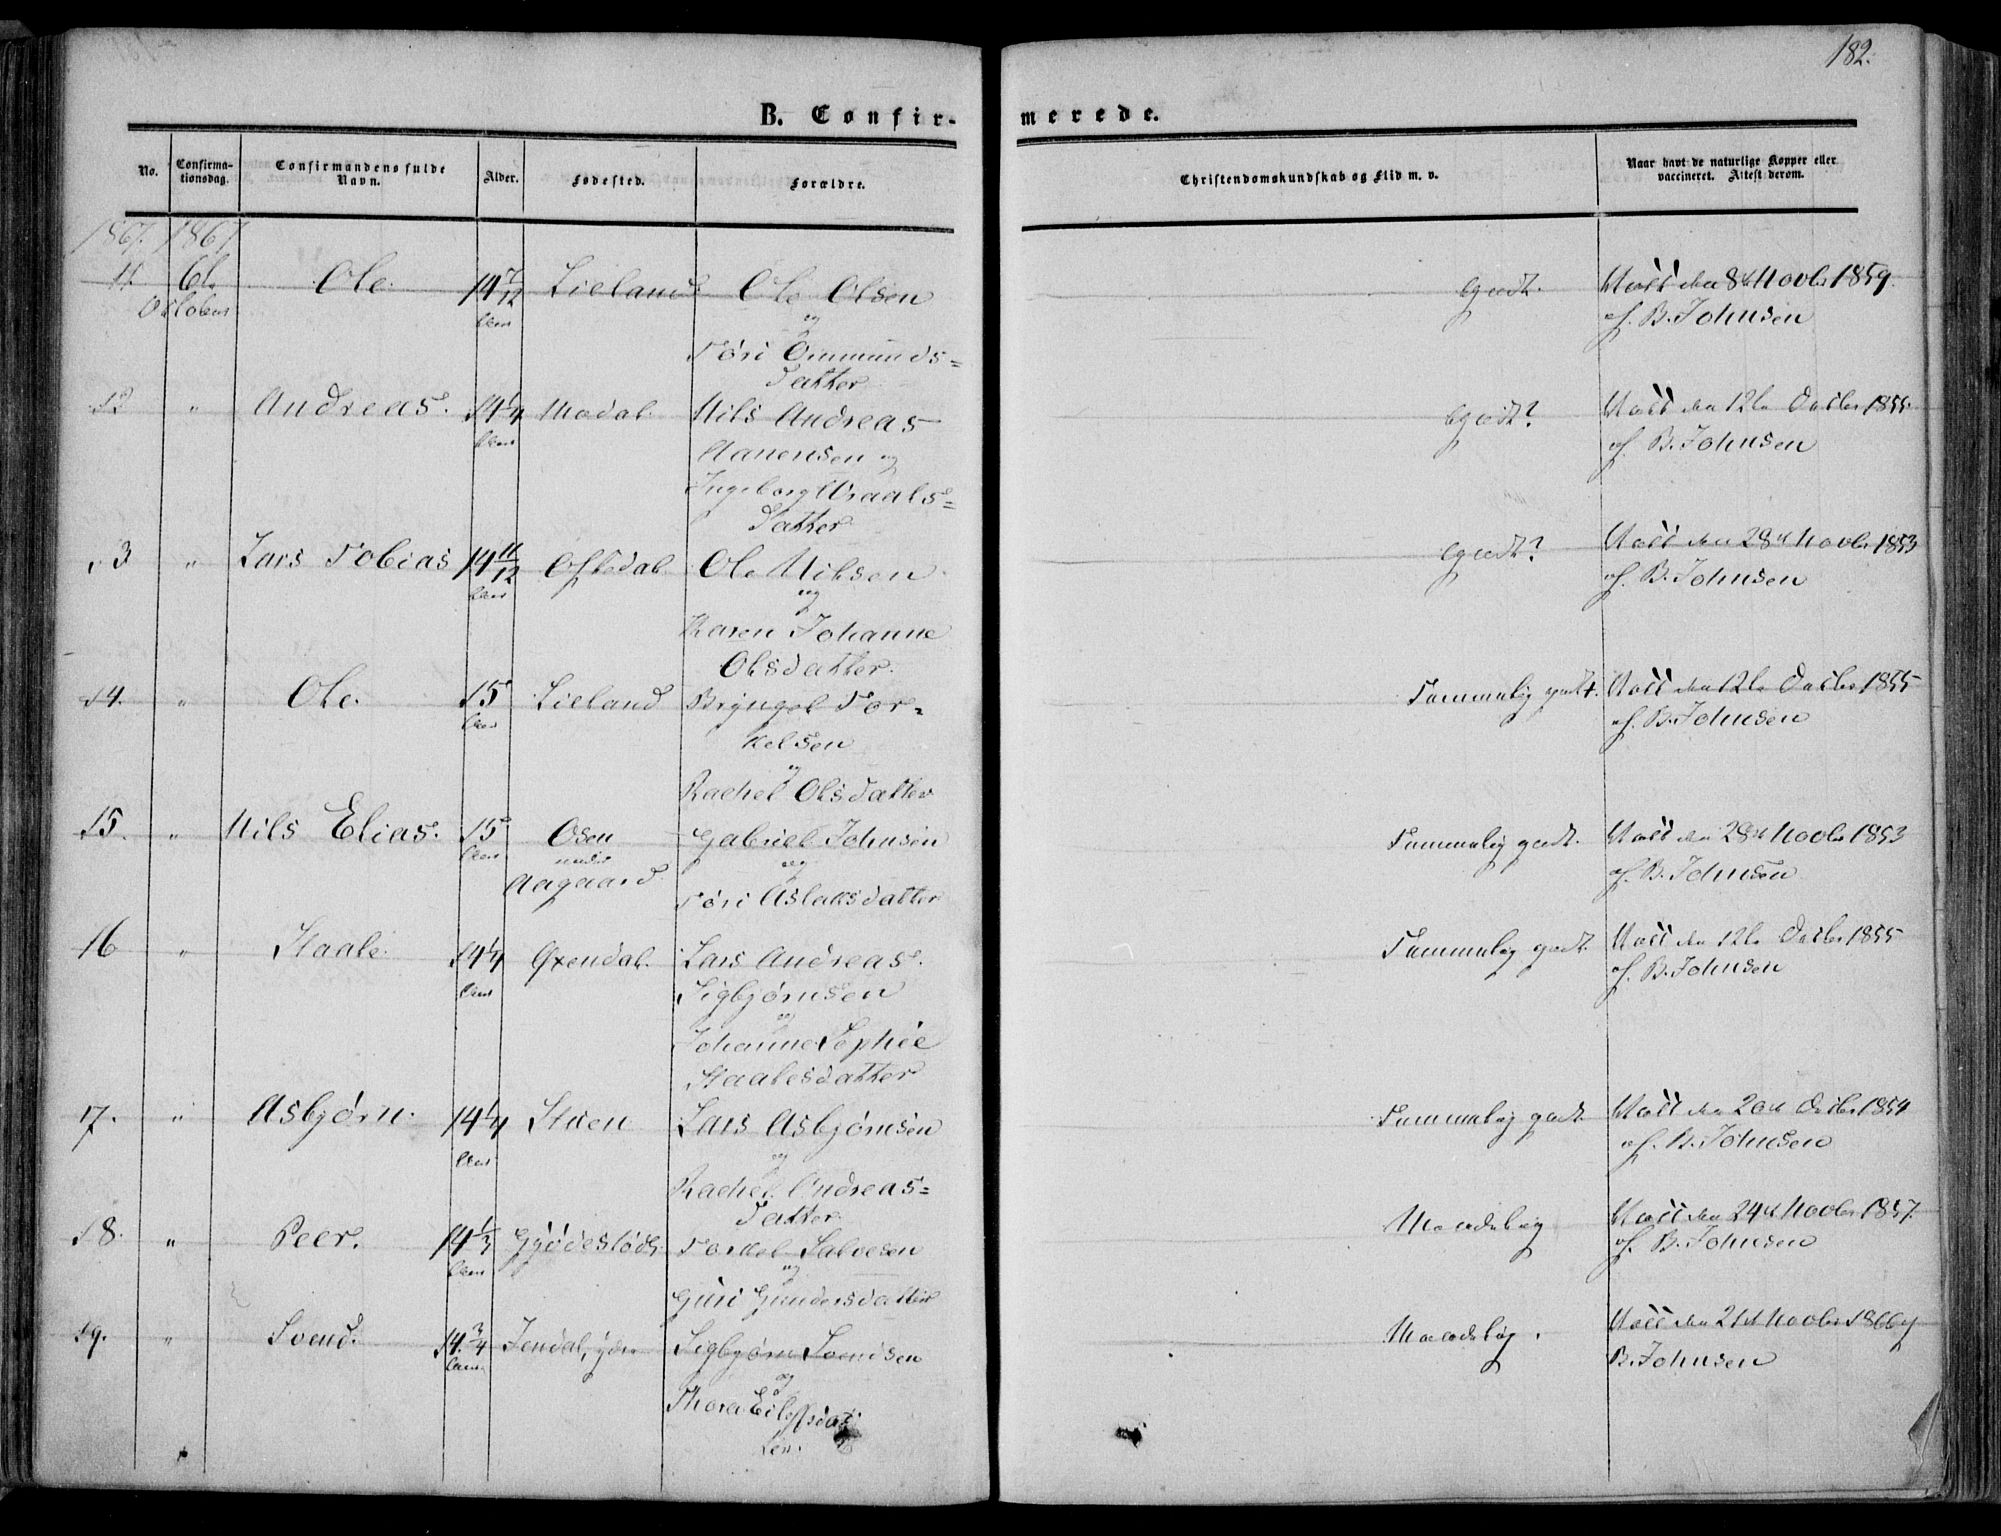 182.
B. Confirmerede.
No. Confirmationsdag. Confirmandens fulde Navn. Alder. Fødested. Forældre. Christendomskundskab og Flid m. v. Naar havt de naturlige Kopper eller vaccineret. Attest derom.
1867. 1867
11. 6te Ole. 14 7/12 Lieland Ole Olsen Godt. Vacc den 8de Novbr 1859.
Octobr Aar og af. B. Johnsen
Tøri Ommunds=
datter
12 " Andreas. 14 1/4 Modal. Nils Andreas Godt? Vacc den 12te Decbr 1855.
Aar Aanensen og af. B. Johnsen
Ingeborg
datter
13 " Lars Tobias 14 11/12 Oftedal Ole Nilsen Godt? Vacc den 28de Novbr 1853
Aar og af. B. Johnsen
Karen Johanne
Olsdatter.
14. " Ole. 15 Lieland Bryngel Tor= Temmelig godt. Vacc den 12te Decbr 1855
Aar kelsen af. B. Johnsen
og
Rachel Olsdatter
15. " Nils Elias. 15 Osen Gabriel Johnsen Temmelig godt. Vacc den 28de Novbr 1853
Aar under og af. B. Johnsen
Aagaard Tøri Aslaksdatter
16 " Staale. 14 1/4 Øxendal. Lars Andreas Temmelig godt. Vacc den 12te Decbr 1855
Aar Sigbjørnsen af. B. Johnsen
og
Johanne Sophie
Staalesdatter
17. " Asbjørn. 14 1/4 Støen Lars Asbjørnsen Temmelig godt Vacc den 20de Decbr 1854
Aar og af. B. Johnsen
Rachel Andreas=
datter.
18. " Peer. 14 1/3 Gyødestøds Torkel Salvesen Maadelig Vacc den 24de Novbr 1857.
Aar og af. B. Johnsen
Guri Gundersdatter
19. " Svend. 14 3/4 Jendal, Sigbjørn Svendsen Maadelig. Vacc den 21de Novbr 1866 af
Aar og B. Johnsen
Thora